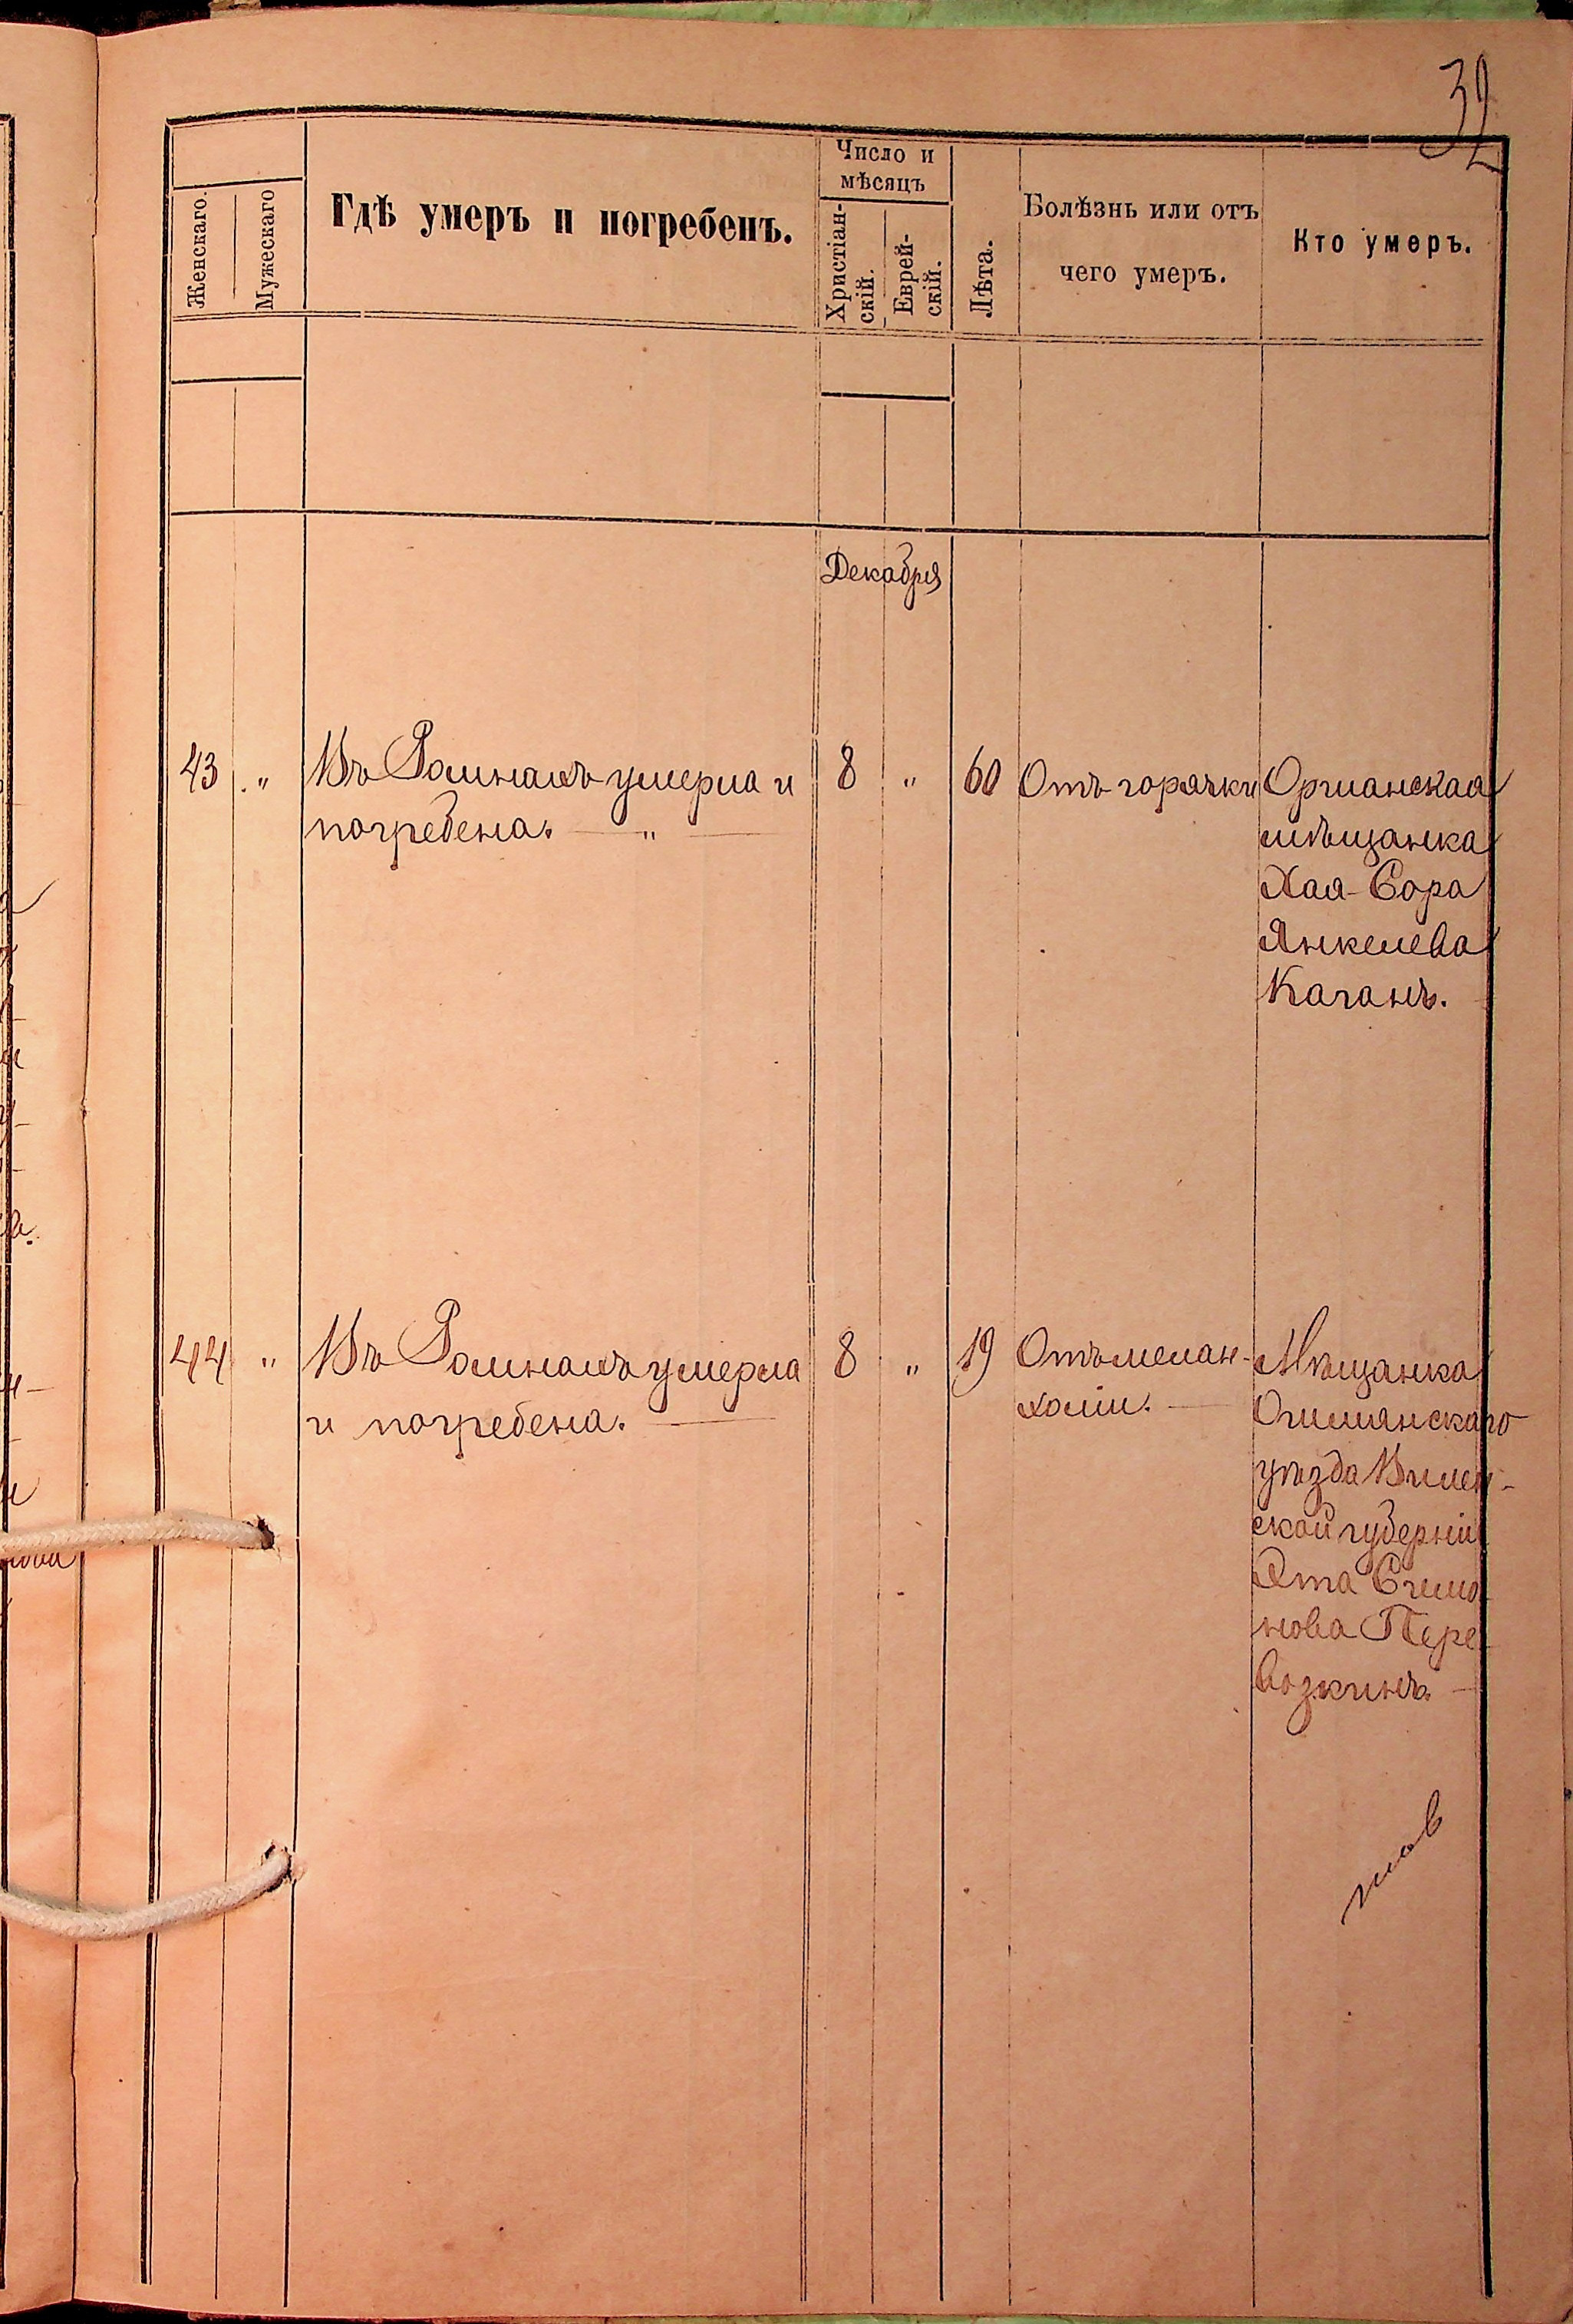 32
Женскаго.
Мужескаго
Гдѣ умеръ и погребенъ.
Число и
мѣсяцъ
Христіан-
скій.
Еврей-
скій.
Лѣта.
Болѣзнь или отъ
чего умеръ.
Кто умеръ.
Декабря
43 " Въ Ромнахъ умерла и 8 " 60 Отъ горячки
погребена. — " —
Оршанская
мѣщанка
Хая-Сора
Янкелева
Каганъ.
44 " Въ Ромнахъ умерла 8 " 19 Отъ мелан-
и погребена. —
холіи. —
Мѣщанка
Ошмянскаго
уѣзда Вилен-
ской губерніи
Эта Симо-
нова Пере-
возкинъ. —